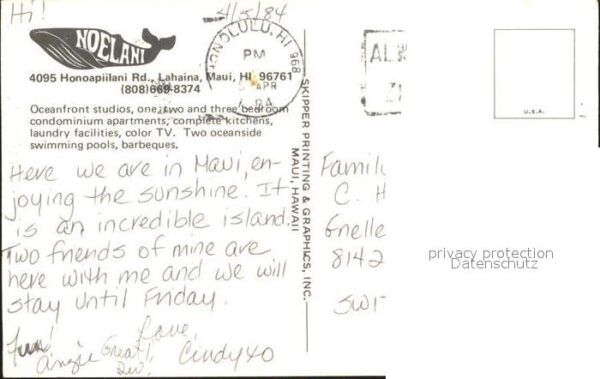 Hi!
4/5/84
NOELANI
4095 Honoapiilani Rd., Lahaina, Maui, HI 96761
(808)669-8374
Oceanfront studios, one, two and three bedroom
condominium apartments, complete kitchens,
laundry facilities, color TV. Two oceanside
swimming pools, barbeques.
HONOLULU, HI 968
PM
APR
84
U.S.A.
SKIPPER PRINTING & GRAPHICS, INC.
MAUI, HAWAII
Here we are in Maui, en-
joying the sunshine. It
is an incredible island.
Two friends of mine are
here with me and we will
stay until Friday.
Love,
Cindy xo
Fun!
Angie
Great!
Famil
C. H
Gnelle
8142
SWI
privacy protection
Datenschutz